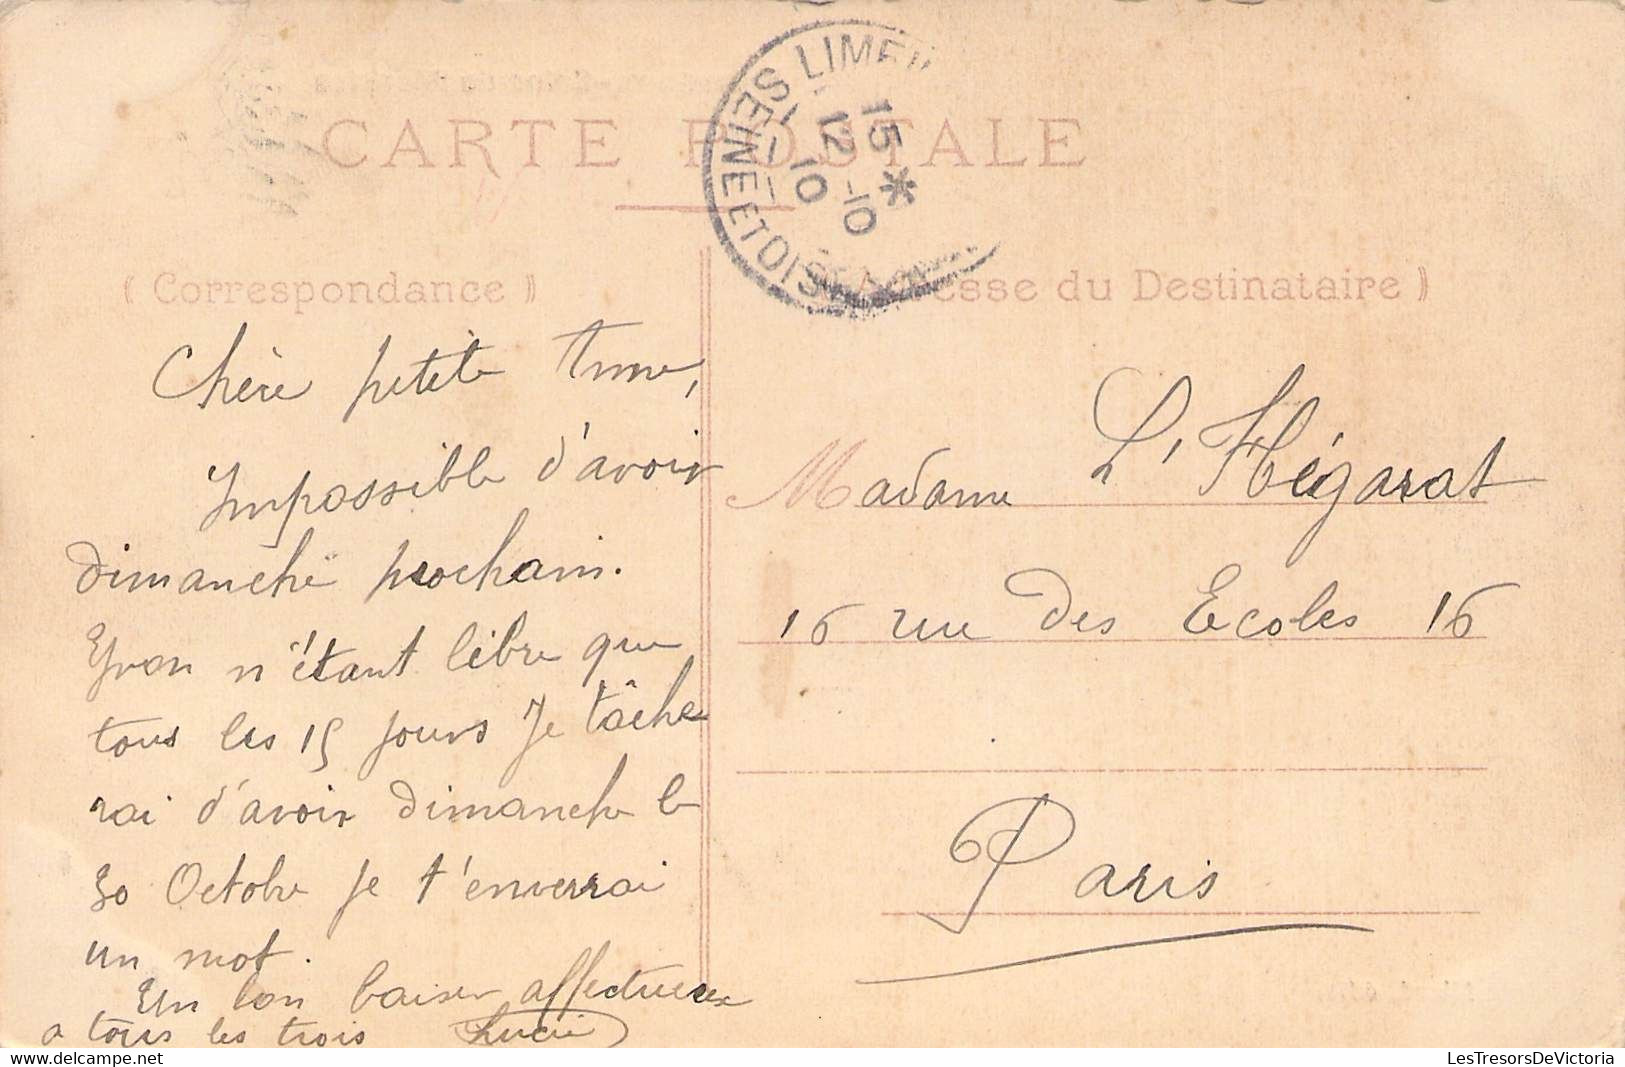 CARTE POSTALE
LIMEI
15 *
12 -10
10
SEINE ET OISE
( Correspondance )
Adresse du Destinataire )
Chère petite
Impossible d'avoir
dimanche prochain.
Yvon n'étant libre que
tous les 15 jours Je tâche
rai d'avoir dimanche le
30 Octobre Je t'enverrai
un mot.
Un bon baiser affectueux
a tous les trois Lucie
Madame L'Hégarat
16 rue des Ecoles 16
Paris
LesTresorsDeVictoria